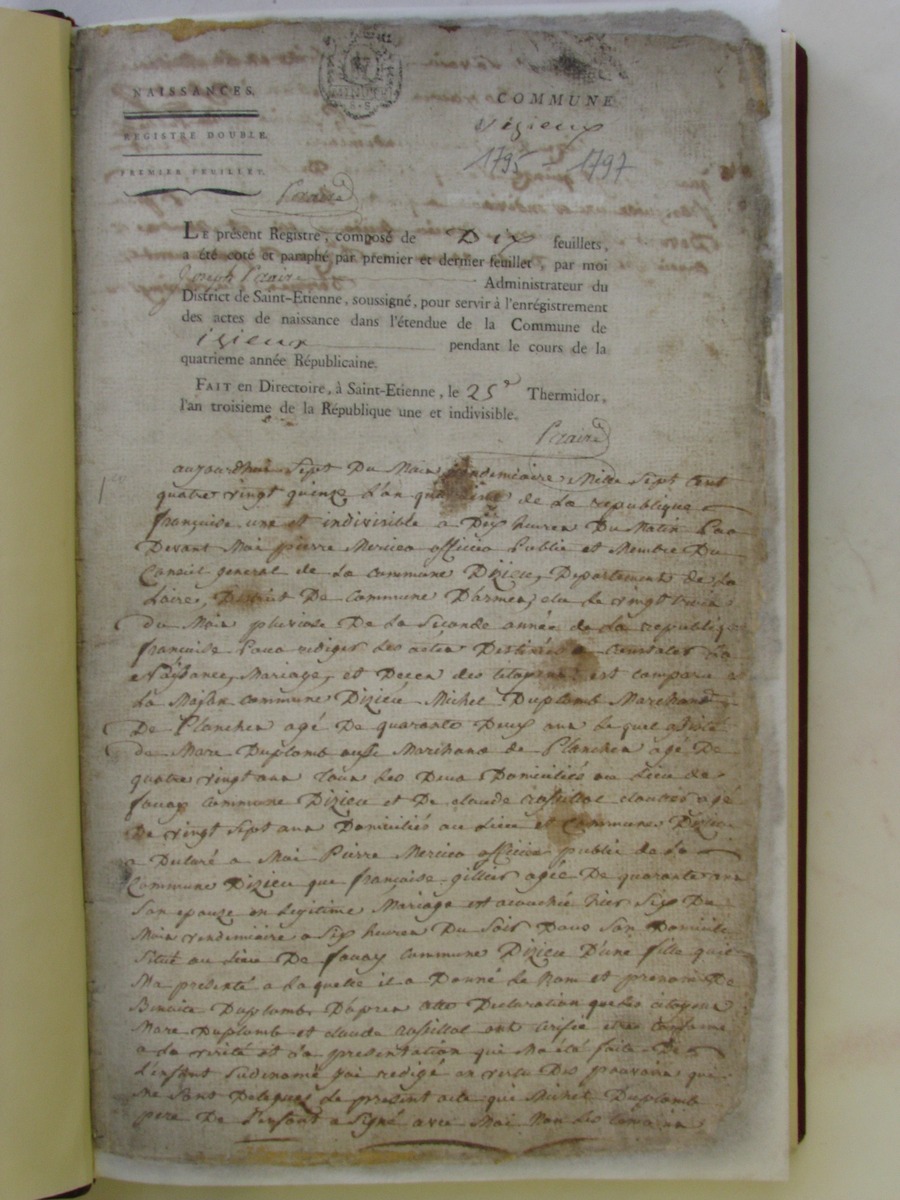 NAISSANCES.
REGISTRE DOUBLE.
PREMIER FEUILLET.
COMMUNE
izieux
1795 - 1797
Praire
LE présent Registre, composé de Dix feuillets,
a été coté et paraphé par premier et dernier feuillet, par moi
Joseph Praire Administrateur du
District de Saint-Etienne, soussigné, pour servir à l'enrégistrement
des actes de naissance dans l'étendue de la Commune de
izieux pendant le cours de la
quatrieme année Républicaine.
FAIT en Directoire, à Saint-Etienne, le 25e Thermidor,
l'an troisieme de la République une et indivisible.
Praire
1er
aujourdhui Sept Du Mois vendemiaire Mille Sept Cent
quatre vingt quinze L'an quatrieme de La republique
françoise une et indivisible a Dix heures Du Matin Par
Devant Moi pierre Mercier officier Public et Membre Du
Conseil general de La commune Dizieu, Departement de La
Loire, District De Commune Darmes, elu Le vingt trois
du Mois pluviose De La Seconde année de La republique
françoise Pour rediger Les actes Destinés a Constater La
Naissance, Mariage, et Deces des citoyens est comparu a
La Maison commune Dizieu Michel Duplomb Marchand
De Planches agé De quarante Deux ans Lequel assisté
de Marc Duplomb aussi Marchand de Planches agé De
quatre vingt ans Tous Les Deux Domiciliés au Lieu de
fouay Commune Dizieu et De claude cloutier agé
De vingt Sept ans Domiciliés au Lieu et Commune Dizieu
a Declaré a Moi Pierre Mercier officier public de La
Commune Dizieu que françoise gillier agée De quarante ans
Son epouze en Legitime Mariage est acouchée hier Six Du
Mois vendemiaire a Six heures Du Soir Dans Son Domicile
Situé au Lieu De fouay Commune Dizieu D'une fille quil
Ma présenté a Laquelle il a Donné Le Nom et prenom De
Benoite Duplomb, D'apres cette Declaration que Les citoyens
Marc Duplomb et claude ont Certifié etre Conforme
a La verité et La présentation qui Ma été faite De
L'enfant Sudenomé jai redigé en vertu Des pouvoirs qui
Me Sont Delegués Le présent acte que Michel Duplomb
pere De L'enfant a Signé avec Moi Non Les temoins